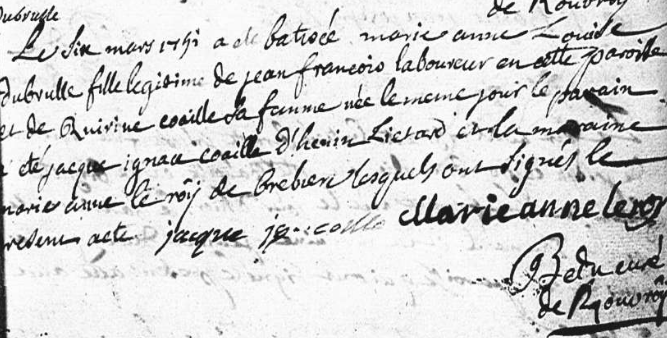 Dubrulle
de Rouvroy
Le six mars 1751 a ete batisée marie anne Louise
dubrulle fille legitime de jean françois laboureur en cette paroisse
et de Quirine coaille sa femme née le meme jour le parain
a été jacque ignace coaille d'henin Lietard et la maraine
marie anne le roÿ de brebier lesquels ont signés le
present acte jacque coaille Marie anne leroy
curé
de Rouvroÿ